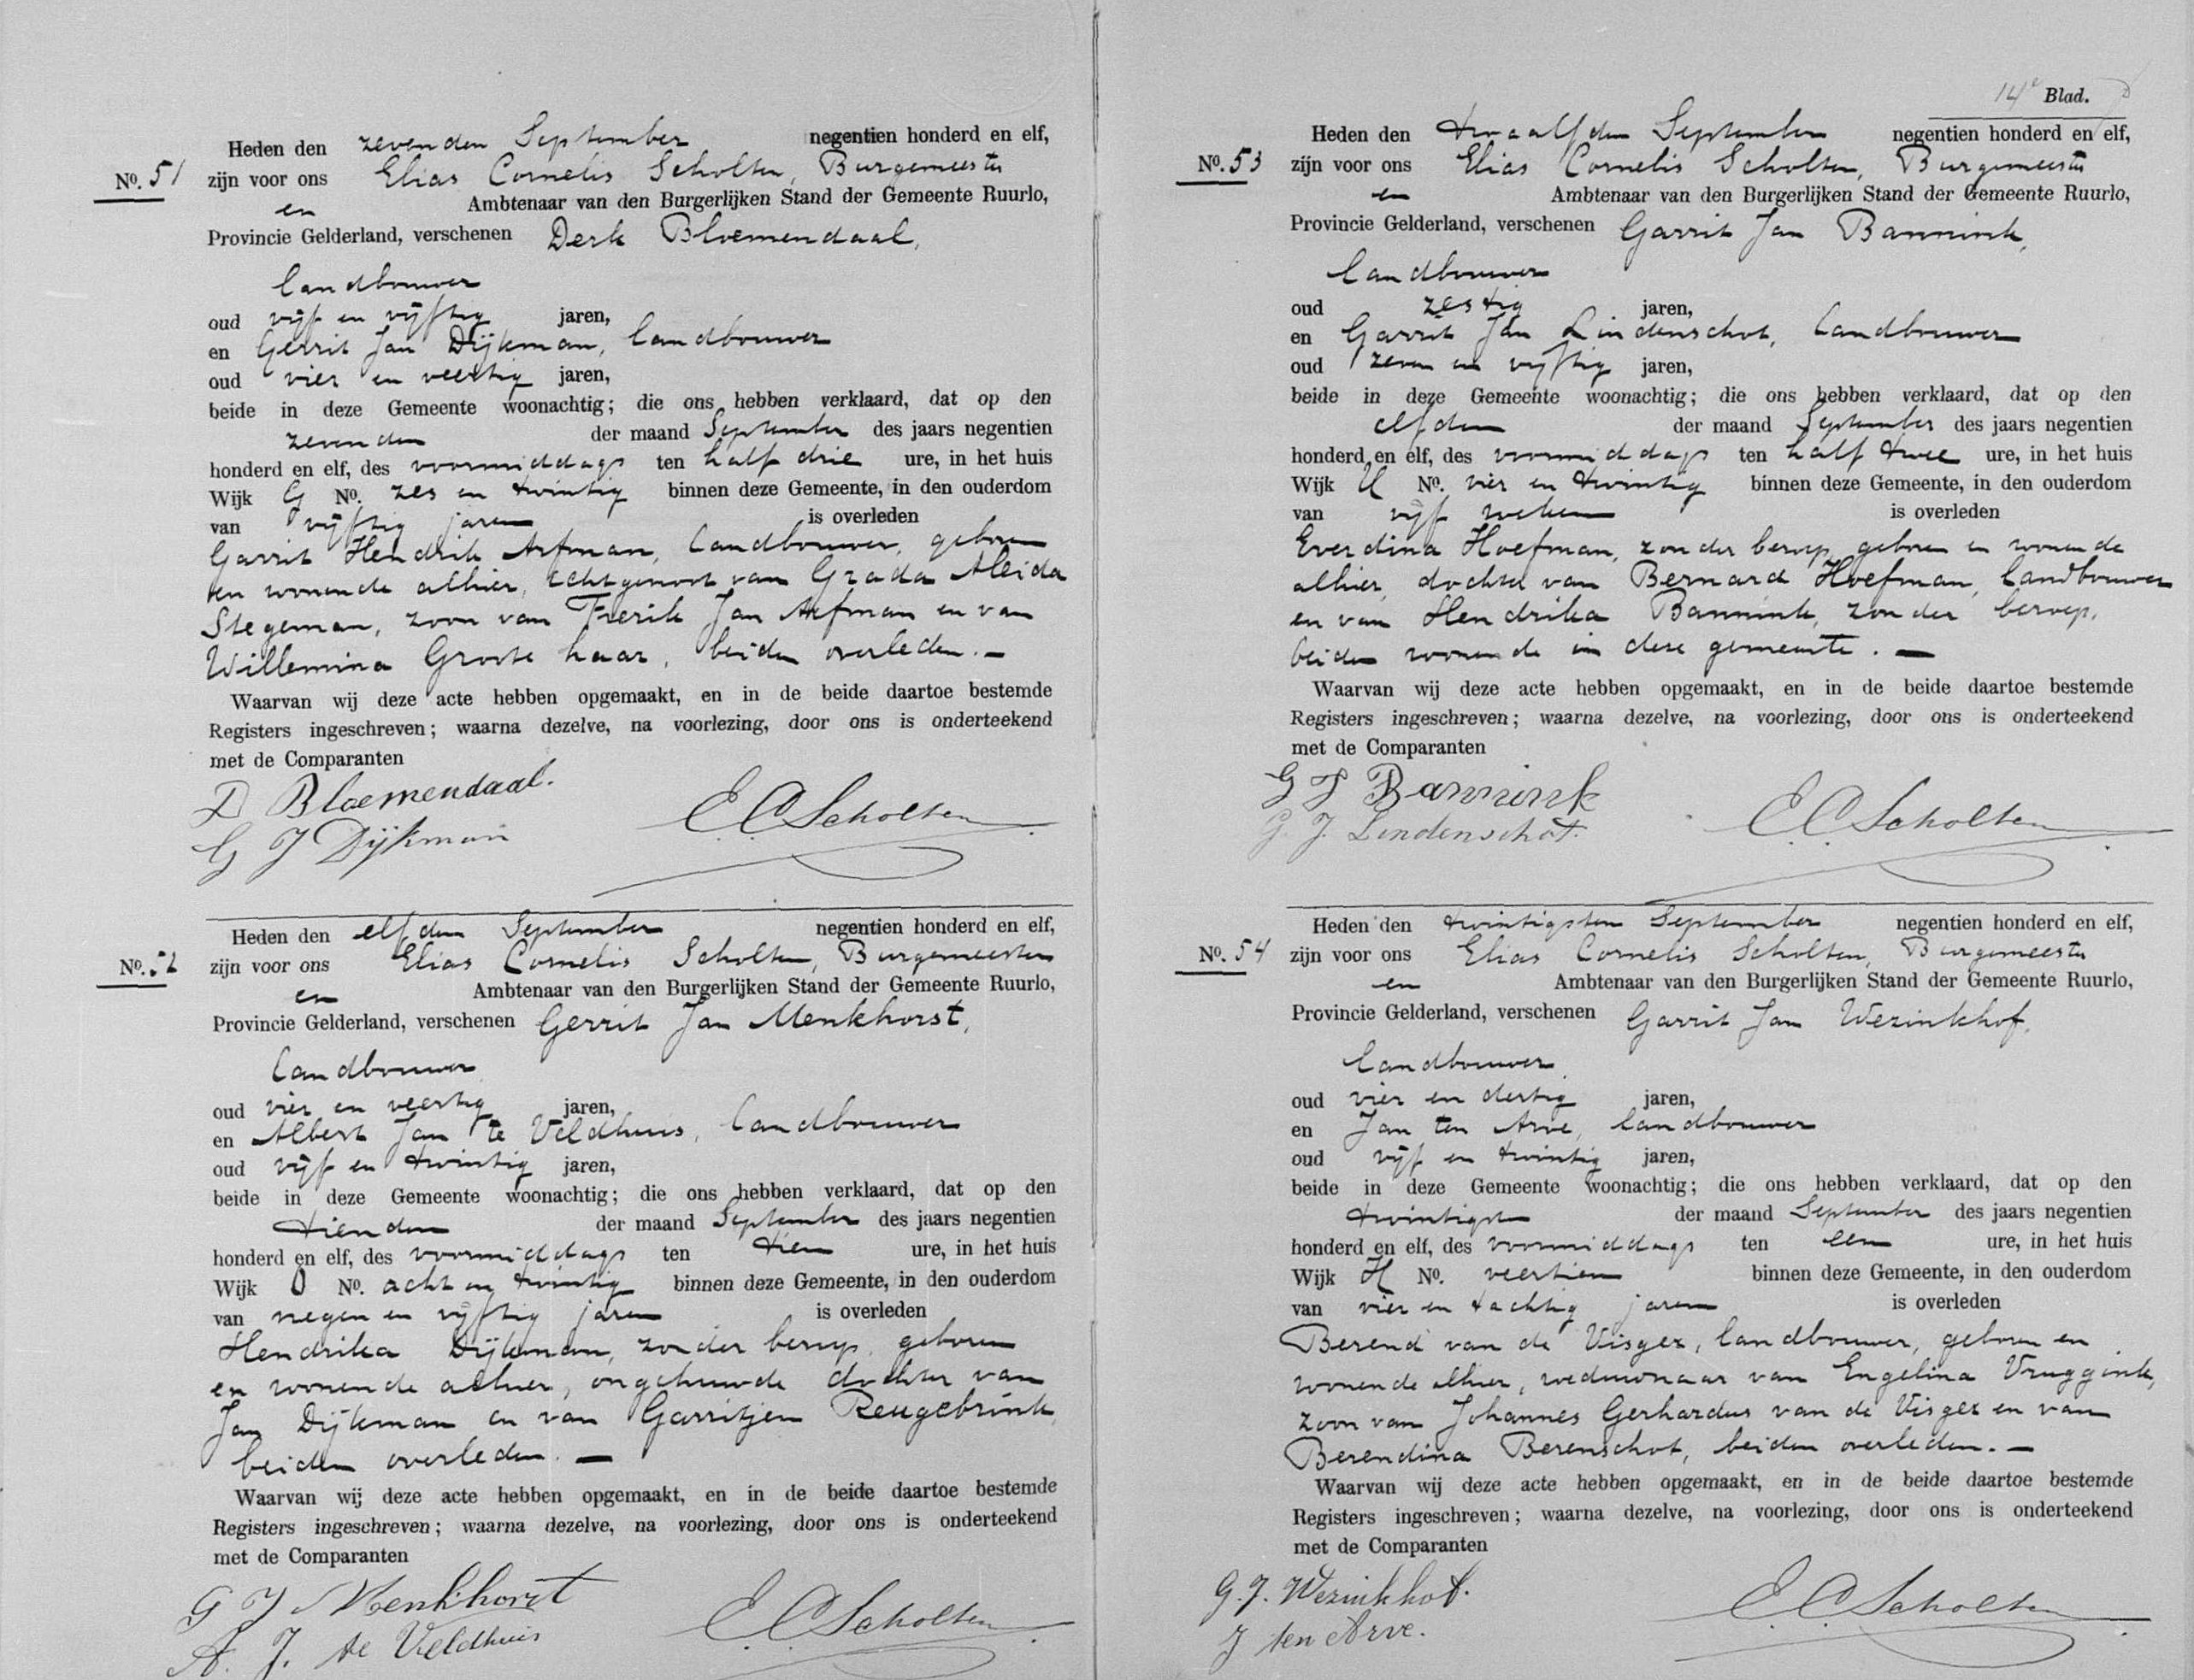 Heden den zevenden September negentien honderd en elf,
No. 51 zijn voor ons Elias Cornelis Scholten, Burgemeester
en Ambtenaar van den Burgerlijken Stand der Gemeente Ruurlo,
Provincie Gelderland, verschenen Derk Bloemendaal,
landbouwer
oud vijf en vijftig jaren,
en Gerrit Jan Dijkman, landbouwer
oud vier en veertig jaren,
beide in deze Gemeente woonachtig; die ons hebben verklaard, dat op den
zevenden der maand September des jaars negentien
honderd en elf, des voormiddags ten half drie ure, in het huis
Wijk G No. zes en twintig binnen deze Gemeente, in den ouderdom
van vijftig jaren is overleden
Garrit Hendrik Arfman, landbouwer, geboren
en wonende alhier, echtgenoot van Grada Aleida
Stegeman, zoon van Frerik Jan Arfman en van
Willemina Groote haar, beiden overleden.—
Waarvan wij deze acte hebben opgemaakt, en in de beide daartoe bestemde
Registers ingeschreven; waarna dezelve, na voorlezing, door ons is onderteekend
met de Comparanten
D Bloemendaal.
G J Dijkman
E C Scholten
Heden den elfden September negentien honderd en elf,
No. 52 zijn voor ons Elias Cornelis Scholten, Burgemeester
en Ambtenaar van den Burgerlijken Stand der Gemeente Ruurlo,
Provincie Gelderland, verschenen Gerrit Jan Menkhorst,
landbouwer
oud vier en veertig jaren,
en Albert Jan te Veldhuis, landbouwer
oud vijf en twintig jaren,
beide in deze Gemeente woonachtig; die ons hebben verklaard, dat op den
tienden der maand September des jaars negentien
honderd en elf, des voormiddags ten tien ure, in het huis
Wijk No. acht en twintig binnen deze Gemeente, in den ouderdom
van negen en vijftig jaren is overleden
Hendrika Dijkman, zonder beroep, geboren
en wonende alhier, ongehuwde dochter van
Jan Dijkman en van Garritjen Reugebrink,
beiden overleden.—
Waarvan wij deze acte hebben opgemaakt, en in de beide daartoe bestemde
Registers ingeschreven; waarna dezelve, na voorlezing, door ons is onderteekend
met de Comparanten
G J Menkhorst
A. J. te Veldhuis
E C Scholten
14e Blad.
Heden den twaalfden September negentien honderd en elf,
No. 53 zijn voor ons Elias Cornelis Scholten, Burgemeester
en Ambtenaar van den Burgerlijken Stand der Gemeente Ruurlo,
Provincie Gelderland, verschenen Garrit Jan Bannink,
landbouwer
oud zestig jaren,
en Garrit Jan Lindenschot, landbouwer
oud zeven en vijftig jaren,
beide in deze Gemeente woonachtig; die ons hebben verklaard, dat op den
elfden der maand September des jaars negentien
honderd en elf, des voormiddags ten half twee ure, in het huis
Wijk No. vier en twintig binnen deze Gemeente, in den ouderdom
van vijf weken is overleden
Everdina Hoefman, zonder beroep, geboren en wonende
alhier, dochter van Bernard Hoefman, landbouwer
en van Hendrika Bannink, zonder beroep,
beiden wonende in deze gemeente.—
Waarvan wij deze acte hebben opgemaakt, en in de beide daartoe bestemde
Registers ingeschreven; waarna dezelve, na voorlezing, door ons is onderteekend
met de Comparanten
G J Bannink
G. J. Lindenschot.
E C Scholten
Heden den twintigsten September negentien honderd en elf,
No. 54 zijn voor ons Elias Cornelis Scholten, Burgemeester
en Ambtenaar van den Burgerlijken Stand der Gemeente Ruurlo,
Provincie Gelderland, verschenen Garrit Jan Wezinkhof,
landbouwer
oud vier en dertig jaren,
en Jan ten Arve, landbouwer
oud vijf en twintig jaren,
beide in deze Gemeente woonachtig; die ons hebben verklaard, dat op den
twintigsten der maand September des jaars negentien
honderd en elf, des voormiddags ten een ure, in het huis
Wijk H No. veertien binnen deze Gemeente, in den ouderdom
van vier en tachtig jaren is overleden
Berend van de Visger, landbouwer, geboren en
wonende alhier, weduwnaar van Engelina Vruggink,
zoon van Johannes Gerhardus van de Visger en van
Berendina Berenschot, beiden overleden.—
Waarvan wij deze acte hebben opgemaakt, en in de beide daartoe bestemde
Registers ingeschreven; waarna dezelve, na voorlezing, door ons is onderteekend
met de Comparanten
G. J. Wezinkhof.
J ten Arve.
E C Scholten